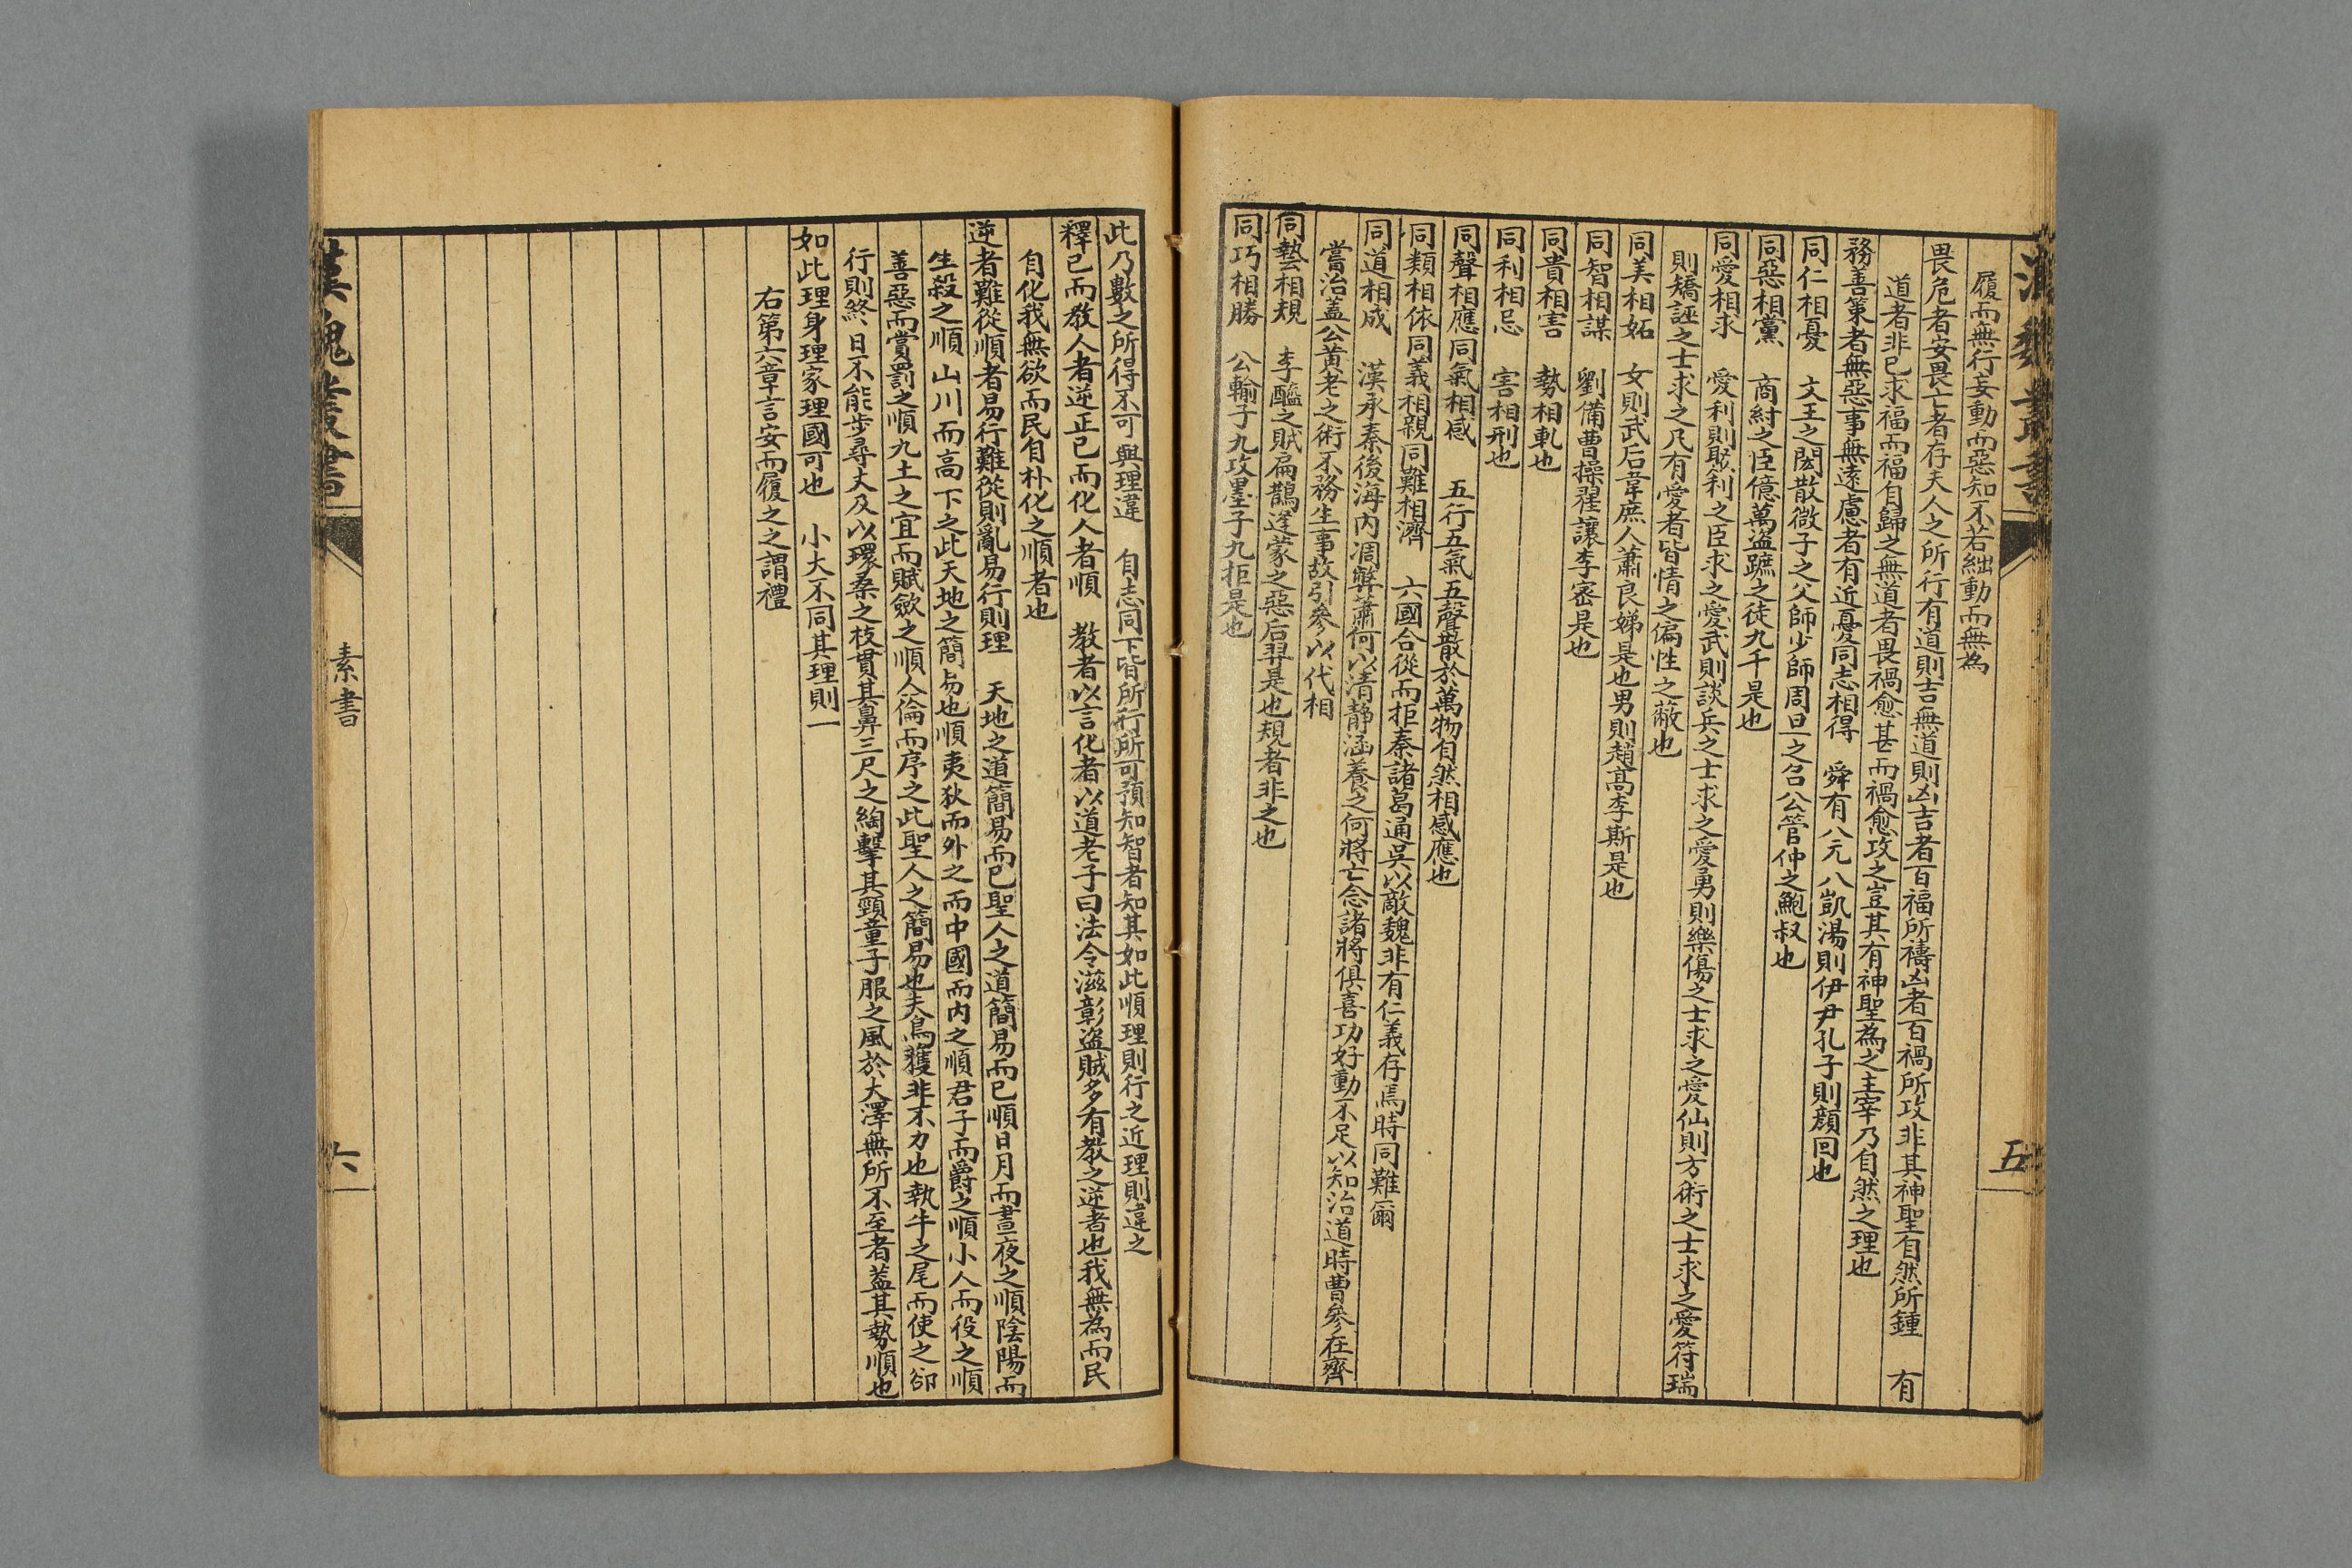 漢魏叢書
五
履而無行妄動而惡知不若絀動而無為
畏危者安畏亡者存夫人之所行有道則吉無道則凶吉者百福所禱凶者百禍所攻非其神聖自然所鍾　有
道者非己求福而福自歸之無道者畏禍愈甚而禍愈攻之豈其有神聖為之主宰乃自然之理也
務善策者無惡事無遠慮者有近憂同志相得　舜有八元八凱湯則伊尹孔子則顏回也
同仁相憂　文王之閎散微子之父師少師周旦之召公管仲之鮑叔也
同惡相黨　商紂之臣億萬盜蹠之徒九千是也
同愛相求　愛利則聚利之臣求之愛武則談兵之士求之愛勇則樂傷之士求之愛仙則方術之士求之愛符瑞
則矯誣之士求之凡有愛者皆情之偏性之蔽也
同美相妬　女則武后韋庶人蕭良娣是也男則趙高李斯是也
同智相謀　劉備曹操翟讓李密是也
同貴相害　勢相軋也
同利相忌　害相刑也
同聲相應同氣相感　五行五氣五聲散於萬物自然相感應也
同類相依同義相親同難相濟　六國合從而拒秦諸葛通吳以敵魏非有仁義存焉時同難爾
同道相成　漢承秦後海內凋弊蕭何以清靜涵養之何將亡念諸將俱喜功好動不足以知治道時曹參在齊
嘗治蓋公黃老之術不務生事故引參以代相
同藝相規　李醯之賊扁鵲逢蒙之惡后羿是也規者非之也
同巧相勝　公輸子九攻墨子九拒是也
此乃數之所得不可與理違　自志同下皆所行所可預知智者知其如此順理則行之近理則違之
釋己而教人者逆正己而化人者順　教者以言化者以道老子曰法令滋彰盜賊多有教之逆者也我無為而民
自化我無欲而民自朴化之順者也
逆者難從順者易行難從則亂易行則理　天地之道簡易而已聖人之道簡易而已順日月而晝夜之順陰陽而
生殺之順山川而高下之此天地之簡易也順夷狄而外之而中國而內之順君子而爵之順小人而役之順
善惡而賞罰之順九土之宜而賦斂之順人倫而序之此聖人之簡易也夫烏獲非不力也執牛之尾而使之卻
行則終日不能步尋丈及以環桑之枝貫其鼻三尺之綯擊其頸童子服之風於大澤無所不至者蓋其勢順也
如此理身理家理國可也　小大不同其理則一
右第六章言安而履之之謂禮
漢魏叢書
素書
六